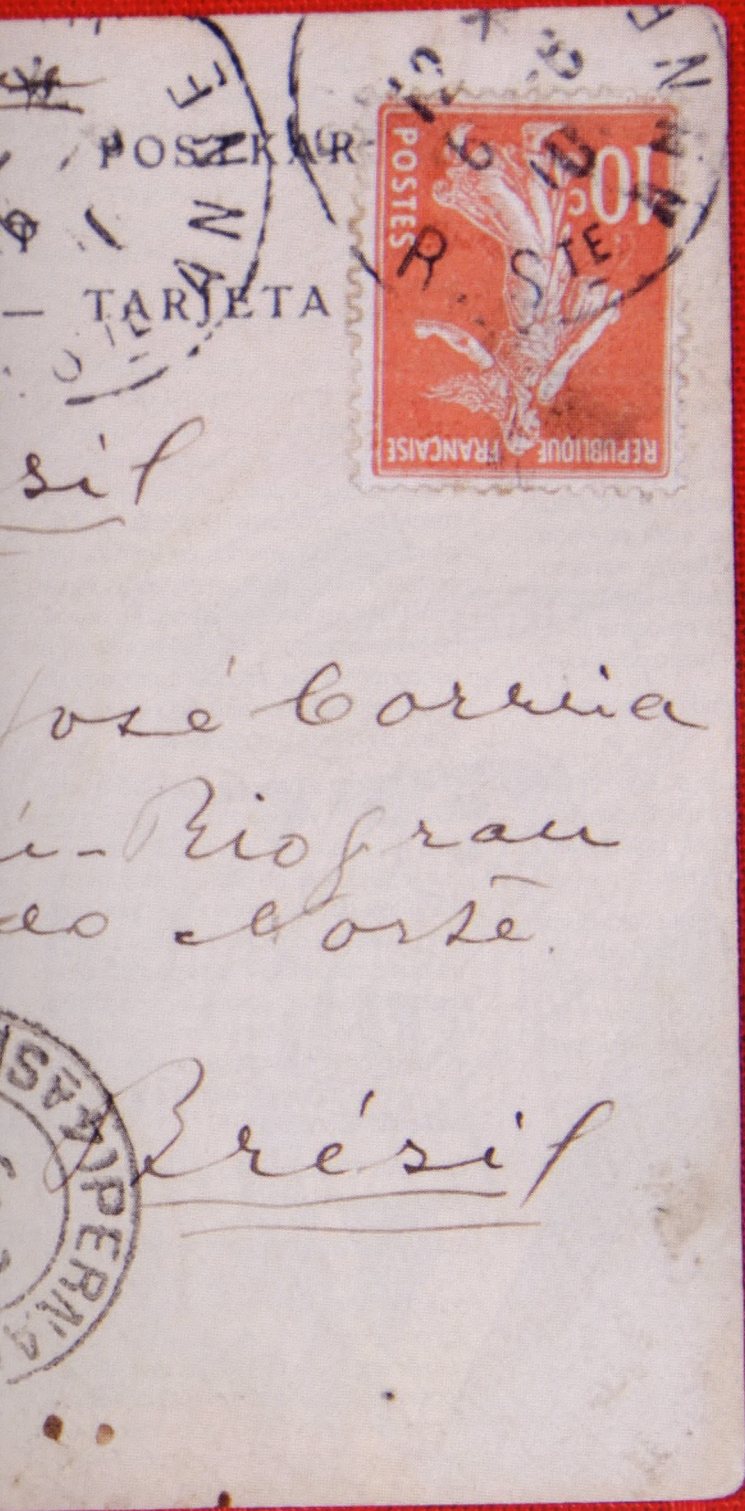 POSTKAR
— TARJETA
POSTES
10c
REPUBLIQUE FRANÇAISE
R STE ANNE
sil
José Correia
-Riogran
do Norte.
Brésil
PERNA